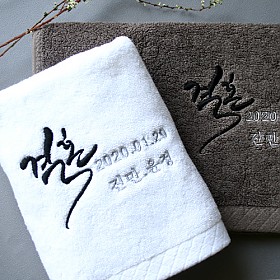 결혼
2020.01.20
진만.윤정
결혼
2020
진만